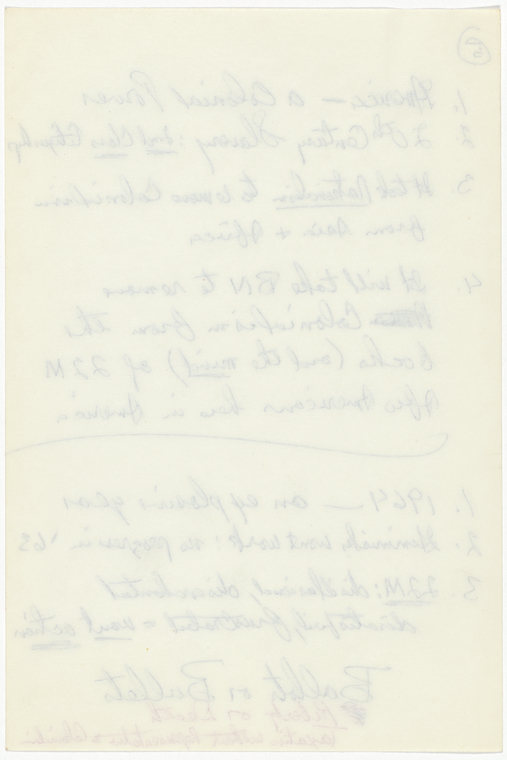 5
1. America — a Colonial Power
2. 20th Century Slavery: 2nd Class Citizenship
3. It took Nationalism to remove Colonialism
from Asia + Africa
4. It will take BN to remove
Colonialism from the
backs (and the mind) of 22M
Afro Americans here in America
1. 1964 — an explosive year
2. Gimmicks wont work: no progress in '63
3. 22M: disillusioned, disenchanted
dissatisfied, frustrated = want action
Ballot or Bullets
Liberty or Death